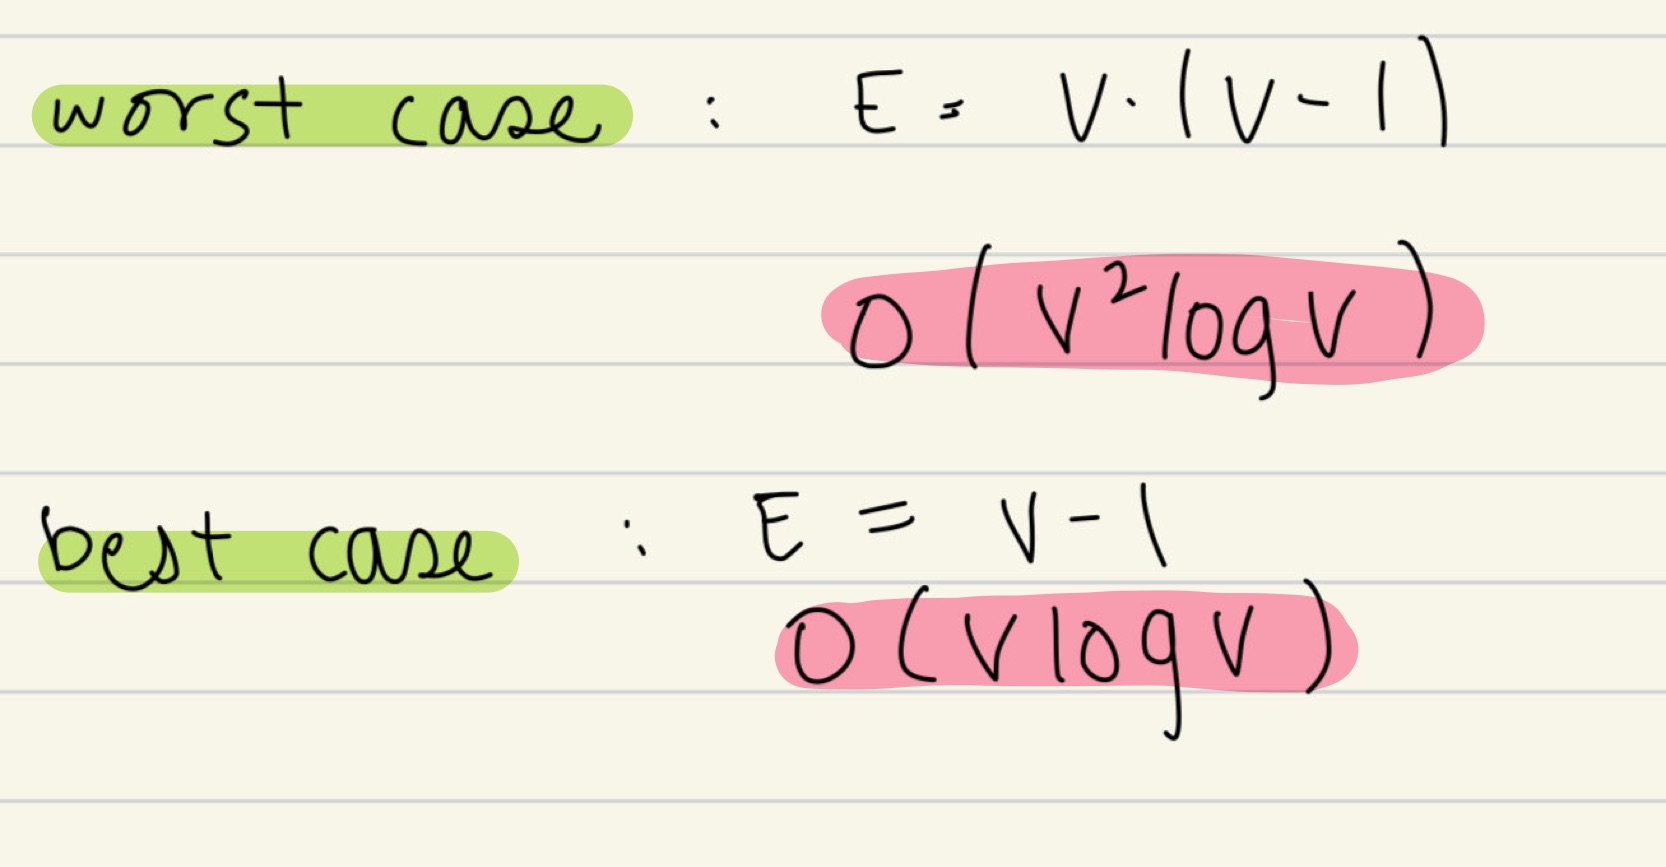 worst case : E = V · (V - 1)
O (V² log V)
best case : E = V - 1
O (V log V)